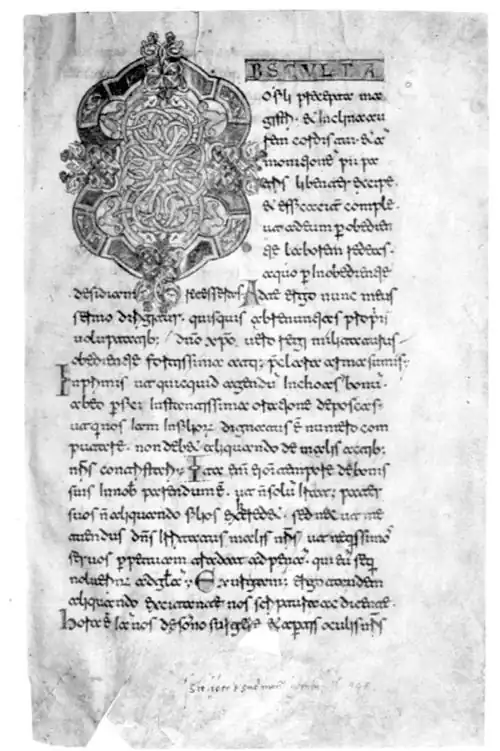 BSCULTA
o fili precepta ma
gistri. & inclina au
rem cordis tui. & a
monitione pii pa
tris libenter excipe.
& efficacit comple.
ut ad eum p obedien
tie laborem redeas.
a quo p inobedientie
desidiam recesseras. Ad te ergo nunc meus
sermo dirigitur. quisquis abrenuntias proprii
voluptatib; dno xpo. vero regi militaturus
obedientie fortissima atq; pclara arma sumis;
Inprimis ut quicquid agendu inchoas bonu.
ab eo pfici instantissima oratione deposcas.
ut qui nos iam in filior dignatus e numero com
putare. non debeat aliquando de malis actib;
nris contristari; Ita eni ei omi tempore de bonis
suis in nob parendum e. ut n solu iratus pater
suos n aliquando filios exheredet. sed nec ut me
tuendus dns irritatus malis nris. ut neqissimos
servos perpetuam tradat ad pena. qui eu sequi
noluerint ad gla; Exurgam ergo tandem
aliquando excitante nos scriptura ac dicente.
Hora e iam nos de sono surgere & aptis oculis nris